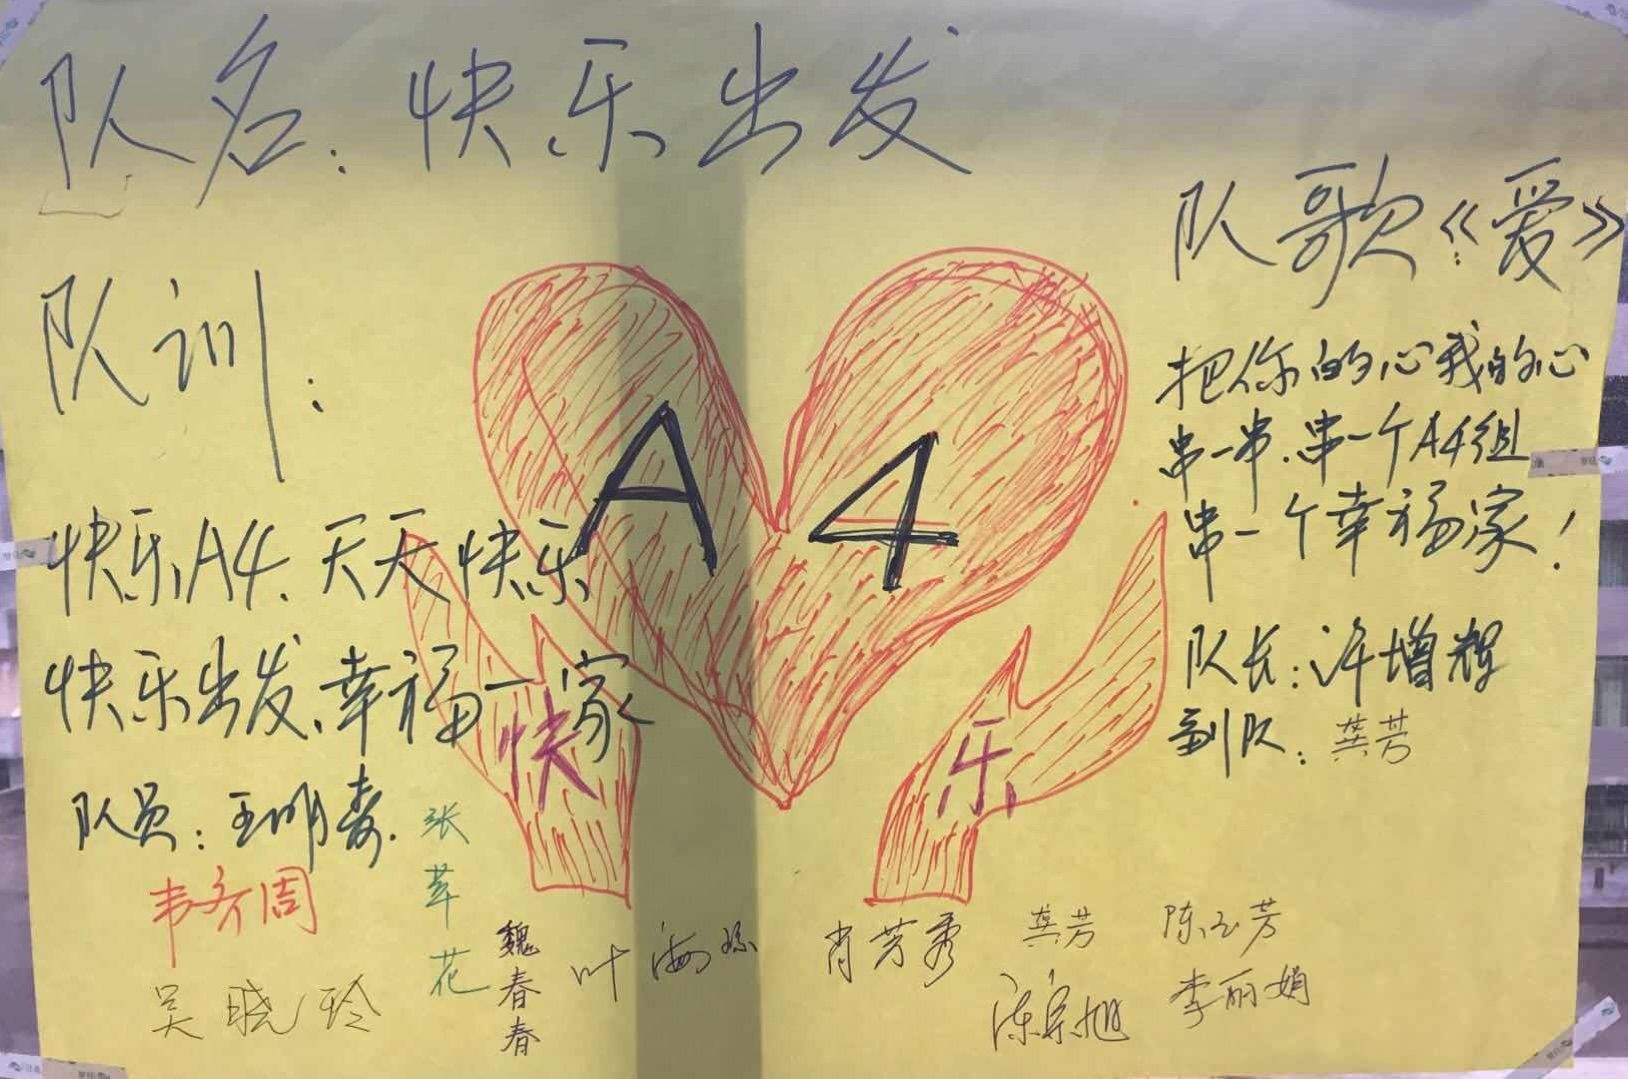 队名：快乐出发
队训：
快乐A4、天天快乐
快乐出发、幸福一家
队歌《爱》
把你的心我的心
串一串、串一个A4组
串一个幸福家！
队长：许增辉
副队：龚芳
A4
快乐
队员：王明春
张苹花
韦齐周
吴晓玲
魏春春
叶海
肖芳秀
龚芳
陈玉芳
陈宗旭
李丽娟